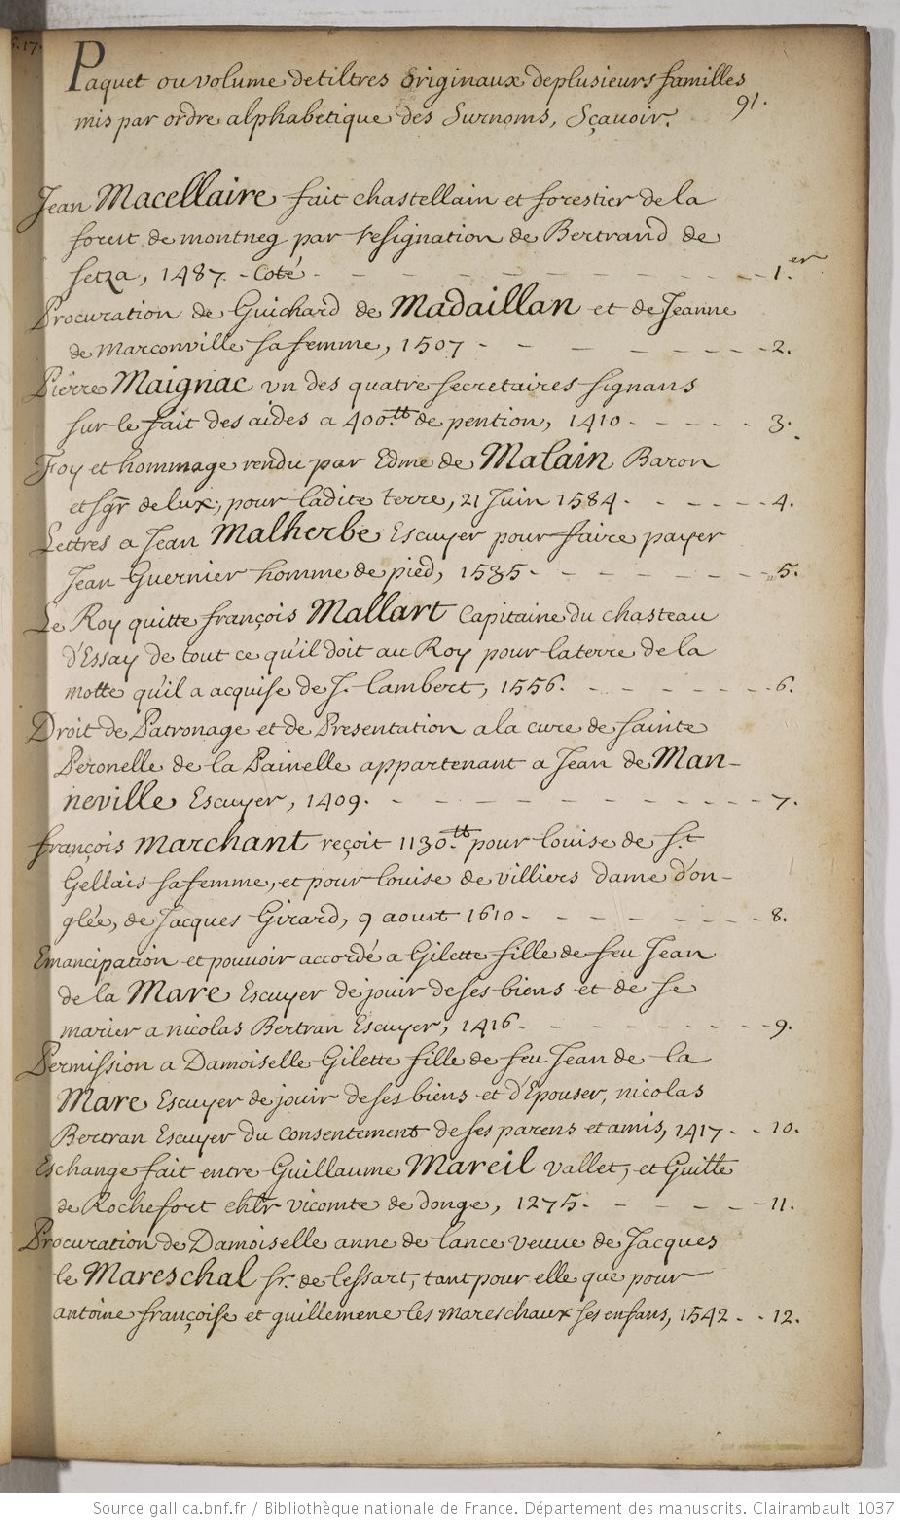 Paquet ou volume de tiltres originaux de plusieurs familles
mis par ordre alphabetique des Surnoms, Sçavoir.
91.
Jean Macellaire fait chastellain et forestier de la
forest de montneg par resignation de Bertrand de
setza, 1487. - Coté - - - - - - - - - - 1.er
Procuration de Guichard de Madaillan et de Jeanne
de Marconville sa femme, 1507 - - - - - - - 2.
Pierre Maignac un des quatre secretaires signans
sur le fait des aides a 400.tt de pention, 1410 - - - - - 3.
Foy et hommage rendu par Edme de Malain Baron
et sgr de lux, pour ladite terre, 21 Juin 1584. - - - - - 4.
Lettres a Jean Malherbe Escuyer pour faire payer
Jean Guernier homme de pied, 1535 - - - - - - - 5.
Le Roy quitte françois Mallart Capitaine du chasteau
d'Essay de tout ce qu'il doit au Roy pour la terre de la
motte qu'il a acquise de J. lambert, 1556. - - - - - - 6.
Droit de Patronage et de Presentation a la cure de sainte
Peronelle de la Painelle appartenant a Jean de Man-
neville Escuyer, 1409. - - - - - - - - - - 7.
françois Marchant reçoit 1130.tt pour louise de s.t
Gellais sa femme, et pour louise de villiers dame d'on-
glée, de Jacques Girard, 9 aoust 1610 - - - - - - - 8.
Emancipation et pouvoir accordé a Gilette fille de feu Jean
de la Mare Escuyer de jouir de ses biens et de se
marier a nicolas Bertran Escuyer, 1416 - - - - - - - 9.
Permission a Damoiselle Gilette fille de feu Jean de la
Mare Escuyer de jouir de ses biens et d'Epouser, nicolas
Bertran Escuyer du consentement de ses parens et amis, 1417 - - 10.
Eschange fait entre Guillaume Mareil vallet, et Guitte
de Rochefort chlr vicomte de donge, 1275. - - - - - 11.
Procuration de Damoiselle anne de lance veuve de Jacques
le Mareschal sr. de lessart, tant pour elle que pour
antoine françoise et guillemene les mareschaux ses enfans, 1542 - - 12.
Source gallica.bnf.fr / Bibliothèque nationale de France. Département des manuscrits. Clairambault 1037